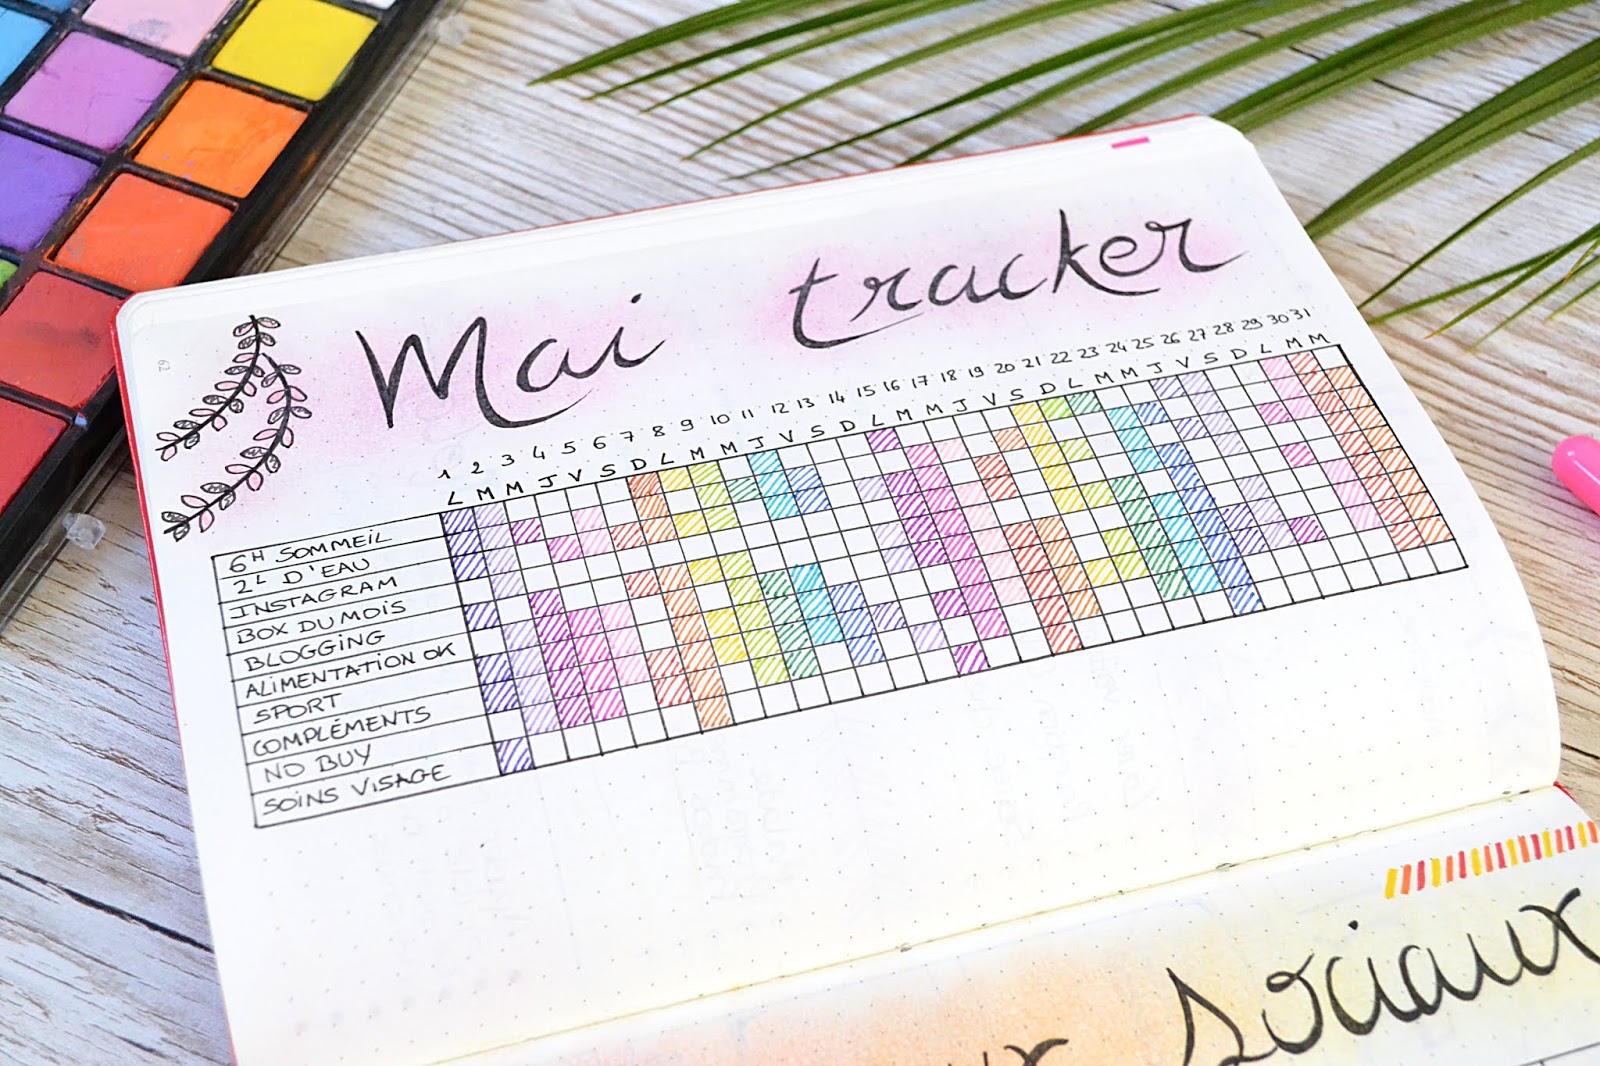 Mai tracker
1 2 3 4 5 6 7 8 9 10 11 12 13 14 15 16 17 18 19 20 21 22 23 24 25 26 27 28 29 30 31
L M M J V S D L M M J V S D L M M J V S D L M M J V S D L M M
6H SOMMEIL
2L D'EAU
INSTAGRAM
BOX DU MOIS
BLOGGING
ALIMENTATION OK
SPORT
COMPLÉMENTS
NO BUY
SOINS VISAGE
62
sociaux